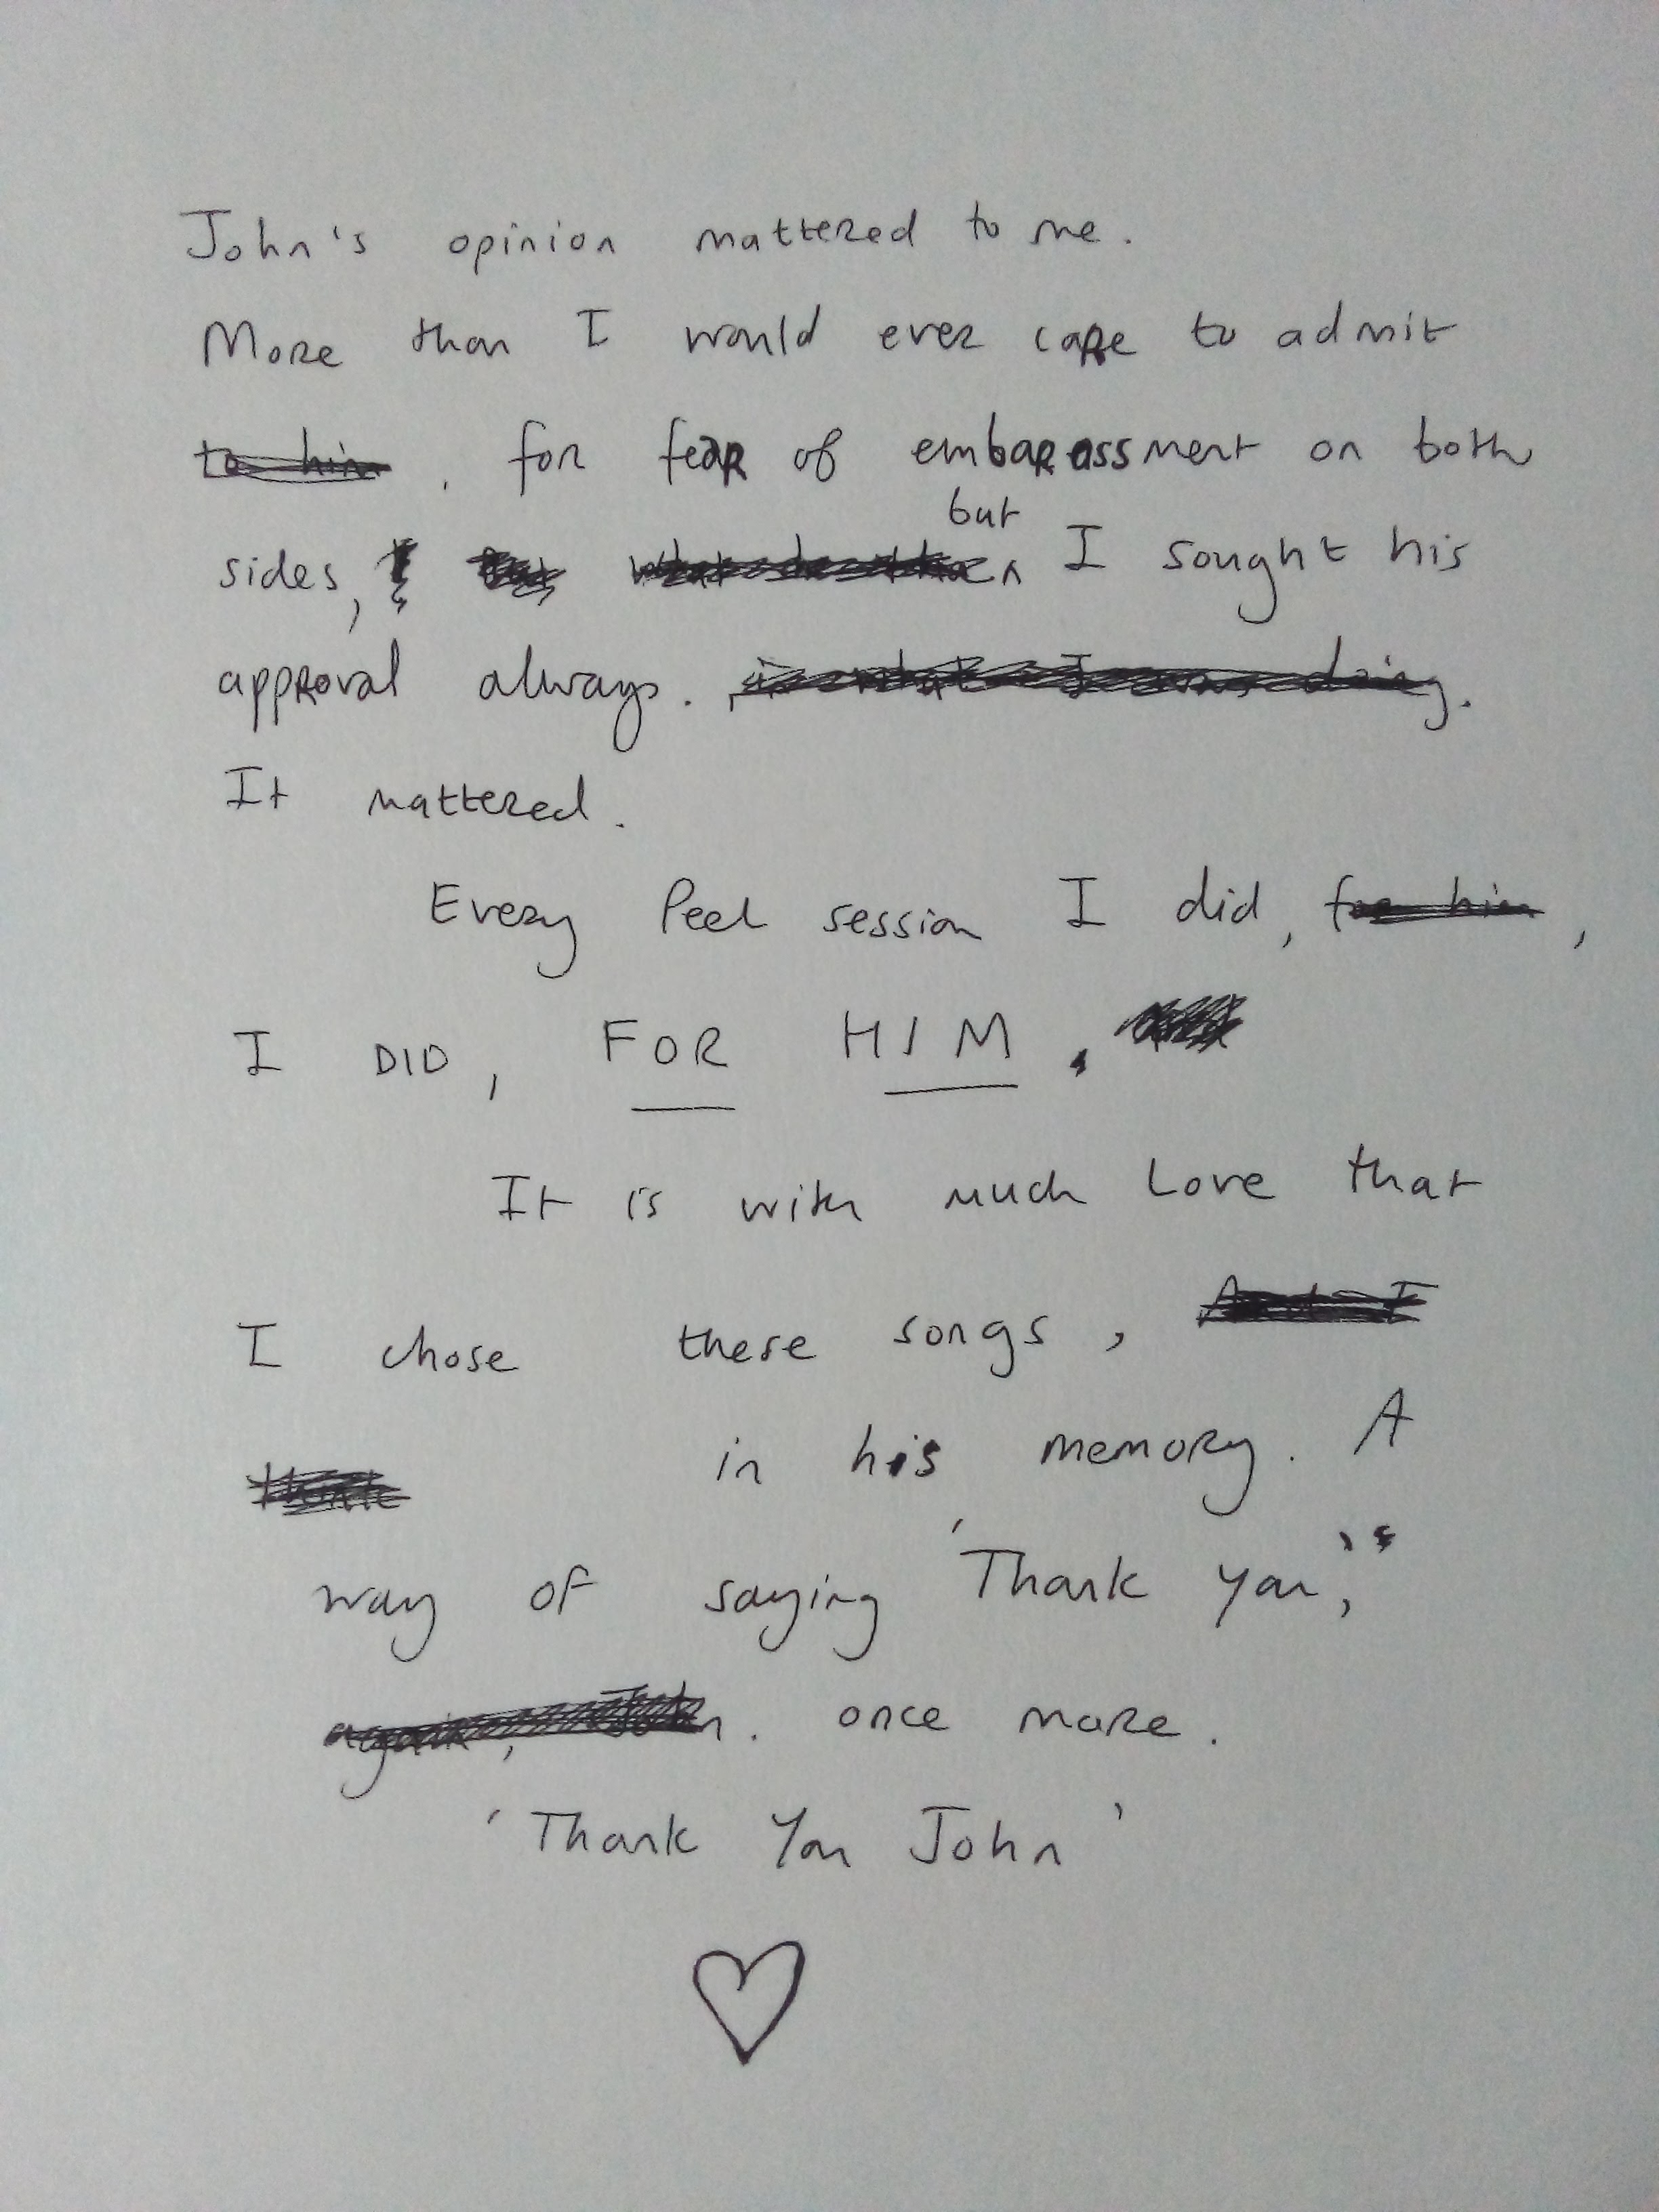 John's opinion mattered to me.
More than I would ever care to admit
to him. for fear of embarassment on both
sides, but I sought his
approval always. in what I was doing.
It mattered.
Every Peel session I did, for him,
I DID, FOR HIM.
It is with much Love that
I chose these songs, And I
in his memory. A
way of saying 'Thank you,'
again, John. once more.
'Thank You John'